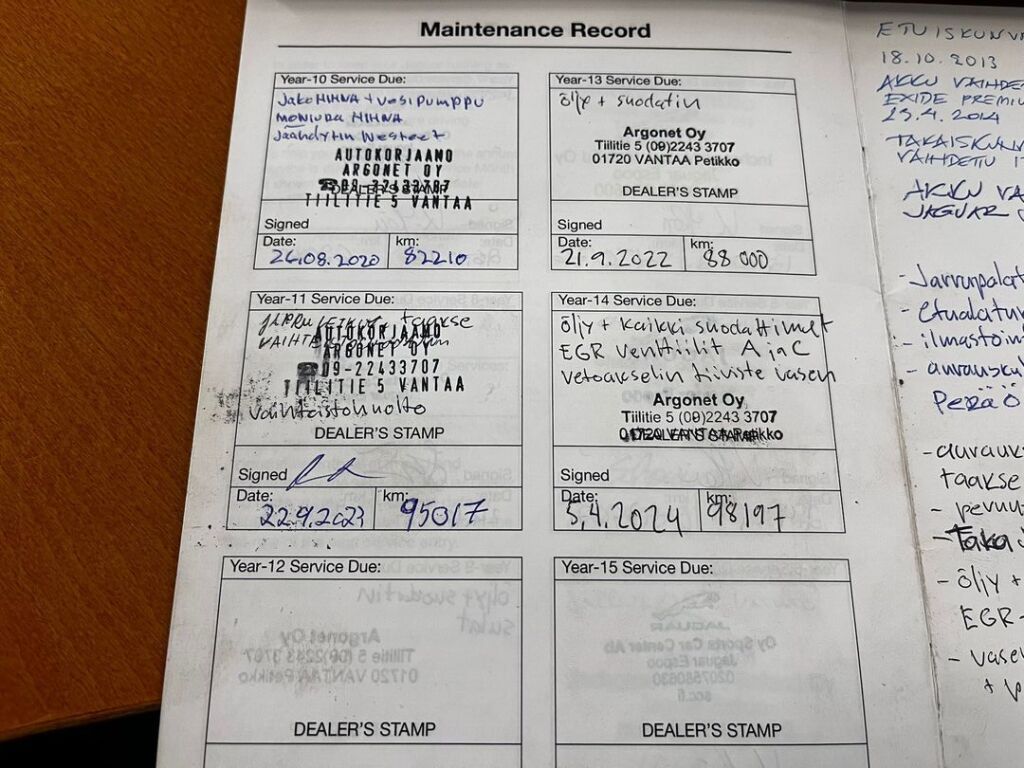 Maintenance Record
Year-10 Service Due:
JakoHIHNA + Vesipumppu
HIHNA
Jäähdytin Nesteet
AUTOKORJAAMO
ARGONET OY
☎09-22433707
DEALER'S STAMP
TIILITIE 5 VANTAA
Signed
Date: km:
26.08.2020 82210
Year-13 Service Due:
öljy + suodatin
Argonet Oy
Tiilitie 5 (09)2243 3707
01720 VANTAA Petikko
DEALER'S STAMP
Signed
Date: km:
21.9.2022 88 000
Year-11 Service Due:
taakse
AUTOKORJAAMO
ARGONET OY
☎09-22433707
TIILITIE 5 VANTAA
DEALER'S STAMP
Signed
Date: km:
22.9.2023 95017
Year-14 Service Due:
öljy + kaikki suodattimet
EGR venttiilit A ja C
vetoakselin tiiviste vasen
Argonet Oy
Tiilitie 5 (09)2243 3707
01720 VANTAA Petikko
DEALER'S STAMP
Signed
Date: km:
5.4.2024 98197
Year-12 Service Due:
DEALER'S STAMP
Year-15 Service Due:
DEALER'S STAMP
ETUISKUNVA
18.10.2013
AKKU VAIHDE
EXIDE PREMIU
23.4.2014
TAKAISKUNV
VAIHDETU
AKKU VA
JAGUAR
- Jarrupalat
- etualatu
- ilmastoin
taakse
- Taka
- öljy +
EGR-
- vasen
+